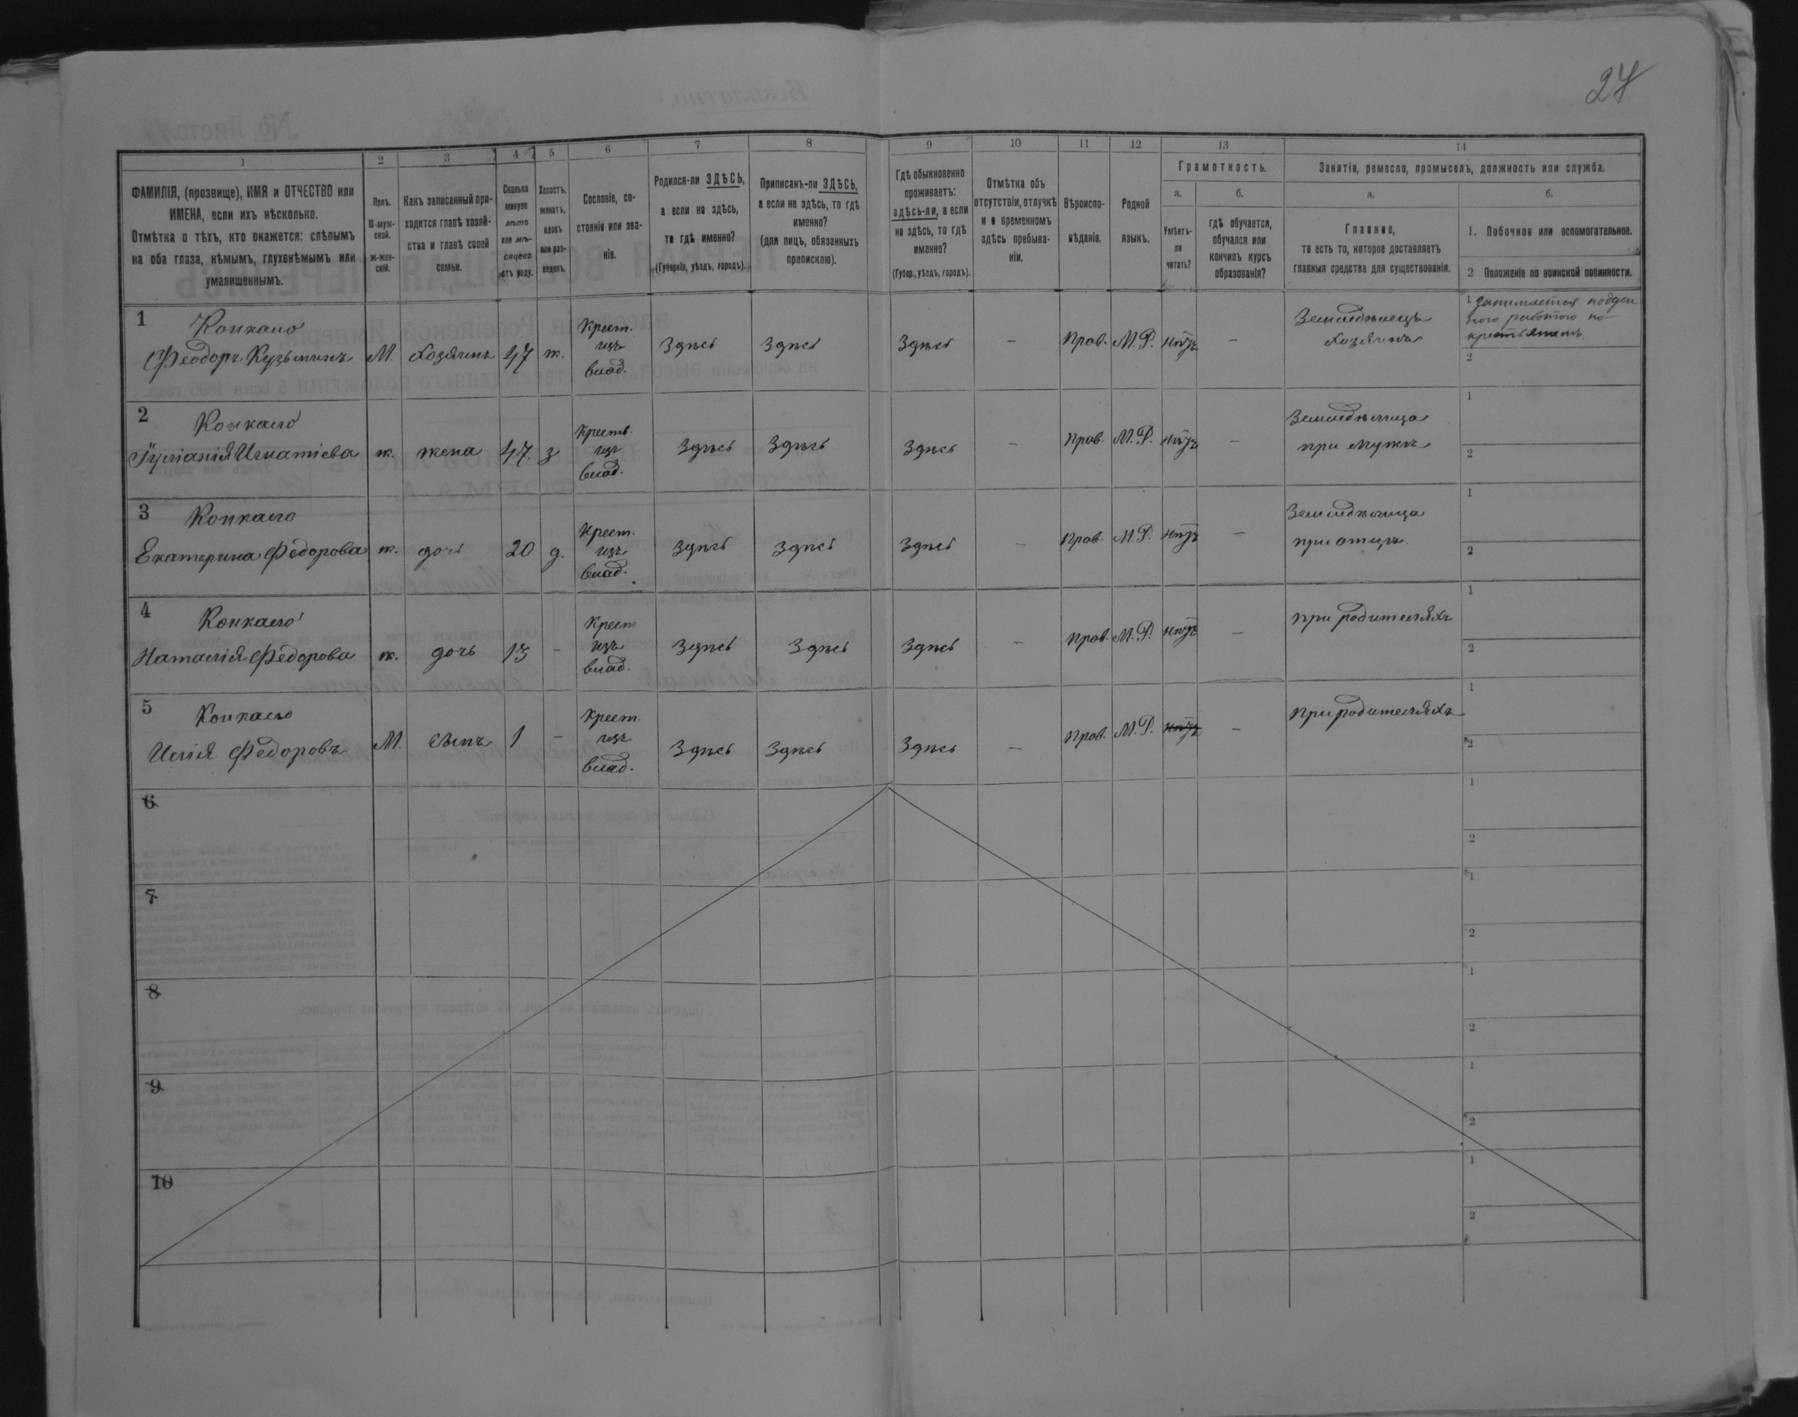 27
1
2
3
4
5
6
7
8
9
10
11
12
13
14
ФАМИЛІЯ, (прозвище), ИМЯ и ОТЧЕСТВО или
ИМЕНА, если ихъ нѣсколько.
Отмѣтка о тѣхъ, кто окажется: слѣпымъ
на оба глаза, нѣмымъ, глухонѣмымъ или
умалишеннымъ.
Полъ.
М-муж-
ской.
Ж-жен-
скій.
Какъ записанный при-
ходится главѣ хозяй-
ства и главѣ своей
семьи.
Сколько
минуло
лѣтъ
или мѣ-
сяцевъ
отъ роду.
Холостъ,
женатъ,
вдовъ
или раз-
веденъ.
Сословіе, со-
стояніе или зва-
ніе.
Родился-ли ЗДѢСЬ,
а если не здѣсь,
то гдѣ именно?
(Губернія, уѣздъ, городъ).
Приписанъ-ли ЗДѢСЬ,
а если не здѣсь, то гдѣ
именно?
(для лицъ, обязанныхъ
припискою).
Гдѣ обыкновенно
проживаетъ:
здѣсь-ли, а если
не здѣсь, то гдѣ
именно?
(Губер., уѣздъ, городъ).
Отмѣтка объ
отсутствіи, отлучкѣ
и о временномъ
здѣсь пребыва-
ніи.
Вѣроиспо-
вѣданіе.
Родной
языкъ.
Грамотность.
а.
Умѣетъ-
ли
читать?
б.
гдѣ обучается,
обучался или
кончилъ курсъ
образованія?
Занятія, ремесло, промыселъ, должность или служба.
а.
Главное,
то есть то, которое доставляетъ
главныя средства для существованія.
б.
1. Побочное или вспомогательное.
2 Положеніе по воинской повинности.
1
Конкало
Феодоръ Кузьминъ М. Хозяинъ 47 ж. Крест. изъ влад. Здѣсь Здѣсь Здѣсь — Прав. М.Р. нѣтъ — Земледѣлецъ хозяинъ
1 Занимается поден
ного работою по
крестьянамъ
2
2
Конкало
Іуліанія Игнатіева ж. жена 47 з Крест. изъ влад. Здѣсь Здѣсь Здѣсь — Прав. М.Р. нѣтъ — Земледѣлица при мужѣ
1
2
3
Конкало
Екатерина Федорова ж. дочь 20 д. Крест. изъ влад. Здѣсь Здѣсь Здѣсь — Прав. М.Р. нѣтъ — Земледѣлица при отцѣ
1
2
4
Конкало
Наталія Федорова ж. дочь 13 — Крест изъ влад. Здѣсь Здѣсь Здѣсь — Прав. М.Р. нѣтъ — при родителяхъ
1
2
5
Конкало
Илія Федоровъ М. сынъ 1 — Крест. изъ влад. Здѣсь Здѣсь Здѣсь — Прав. М.Р. нѣтъ — при родителяхъ
1
2
6
1
2
7
1
2
8
1
2
9
1
2
10
1
2